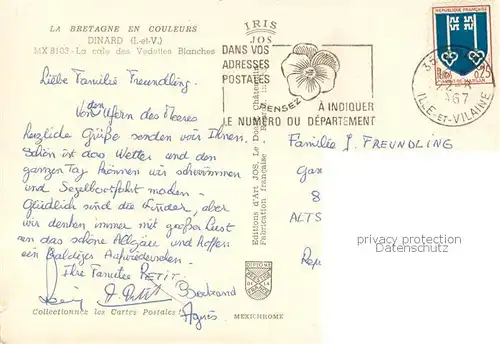 LA BRETAGNE EN COULEURS
DINARD (I.-et-V.)
MX 8103 - La cale des Vedettes Blanches
IRIS
JOS
DANS VOS
ADRESSES
POSTALES
PENSEZ
À INDIQUER
LE NUMÉRO DU DÉPARTEMENT
RÉPUBLIQUE FRANÇAISE
0,25
MONT-DE-MARSAN
35
ILLE-ET-VILAINE
Liebe Familie Freundling.
Von den Ufern des Meeres
herzliche Grüße senden wir Ihnen.
Schön ist das Wetter und den
ganzen Tag können wir schwimmen
und Segelbootfahrt machen.
Glücklich sind die Kinder, aber
wir denken immer mit großer Lust
an das schöne Allgäu und hoffen
ein baldiges Aufwiedersehen.
Ihre Familie PETIT.
Bertrand
Agnès
Familie J. FREUNDLING
Gas
8
ALTS
Editions d'Art JOS, Le Doaré, Châ
Fabrication française
privacy protection
Datenschutz
Collectionnez les Cartes Postales
MEXICHROME